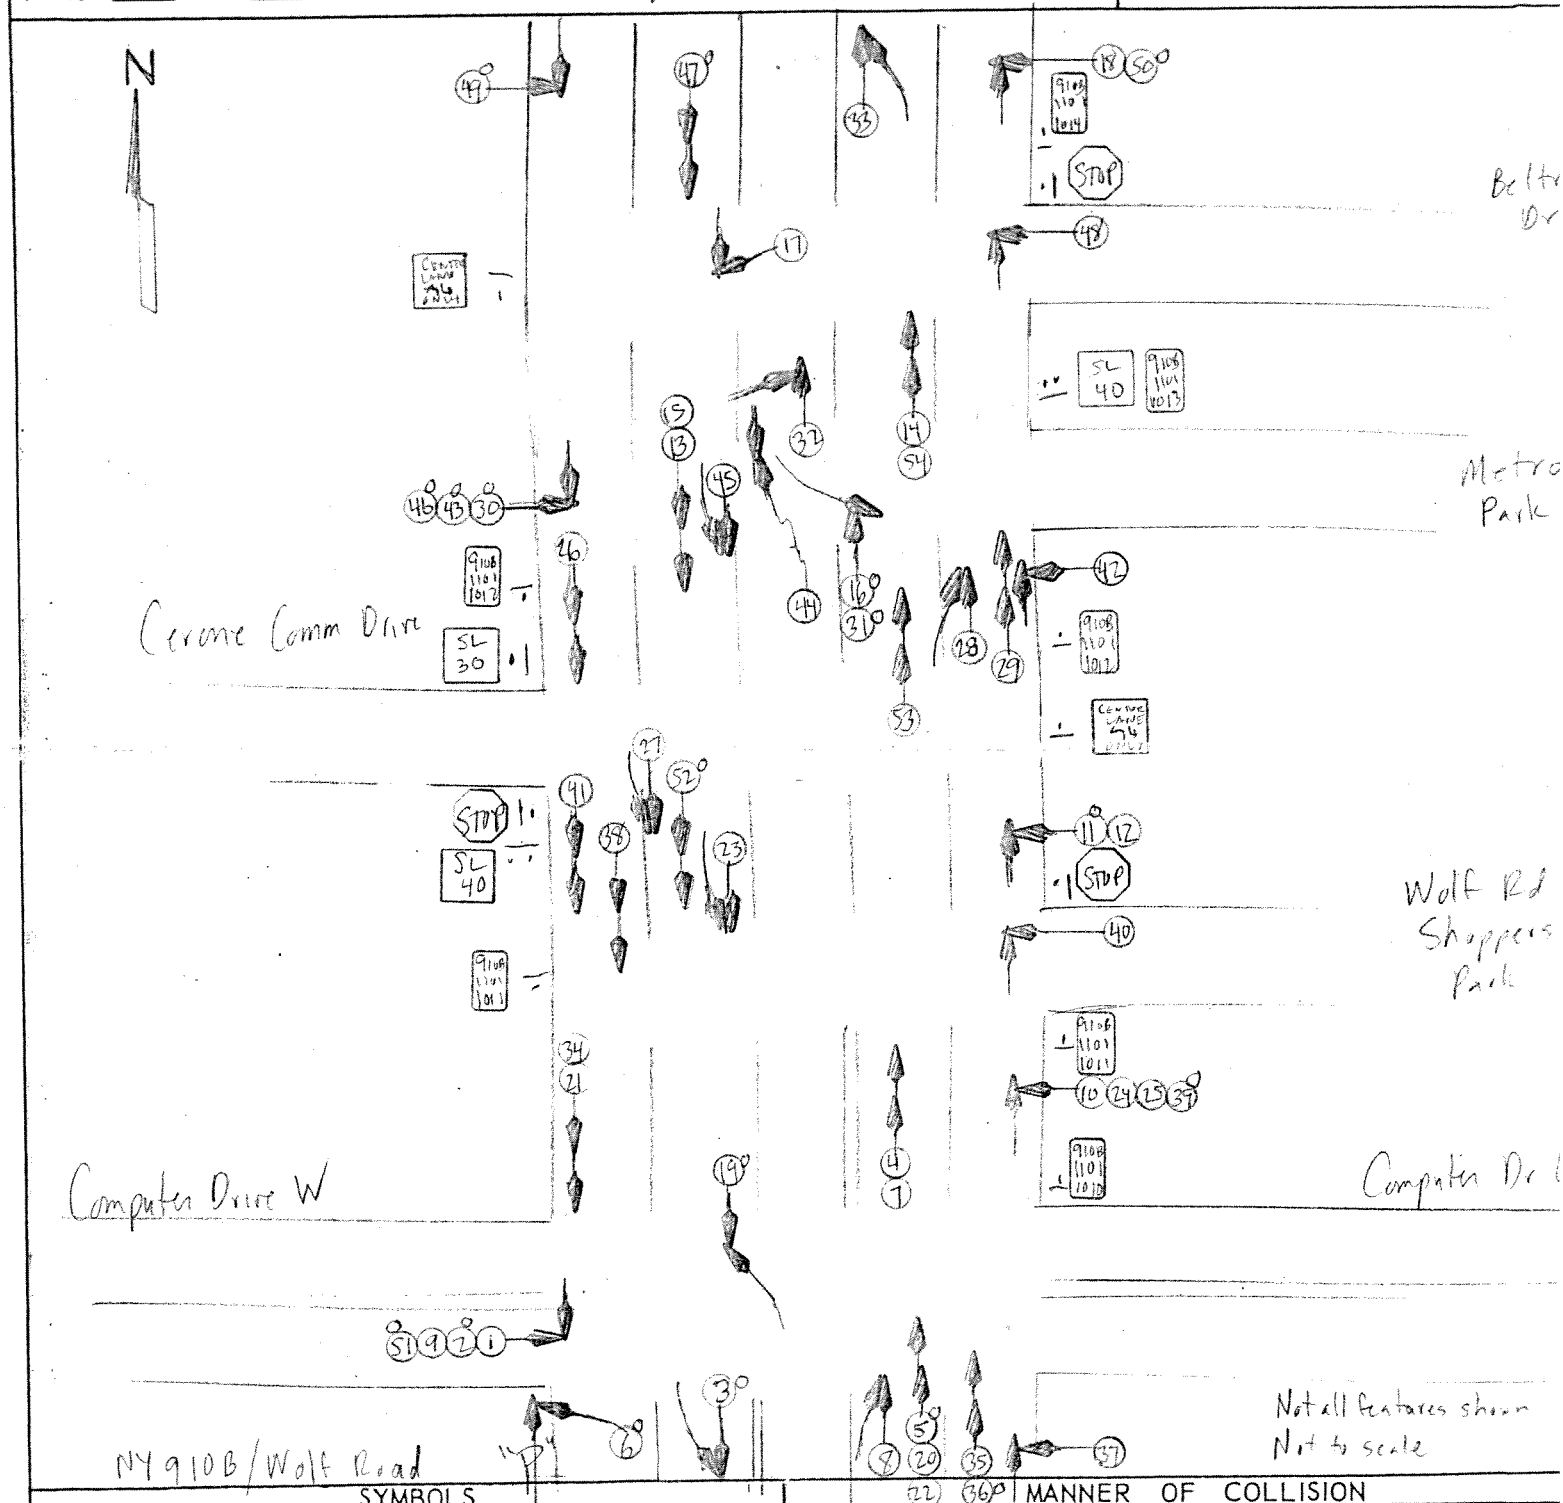 N
49
47
33
18 50
910B
1101
1014
STOP
Beltr
Dr
17
48
CENTER
LANE
ONLY
SL
40
910B
1101
1013
15
13
32
14
54
45
Metro
Park
46 43 30
26
910B
1101
1012
44
16
31
42
28
29
910B
1101
1012
Cerone Comm Drive
SL
30
53
CENTER
LANE
ONLY
27
52
41
STOP
38
23
11 12
SL
40
STOP
Wolf Rd
Shoppers
Park
40
910B
1101
1011
34
21
910B
1101
1011
10 24 25 39
4
7
19
910B
1101
1010
Computer Drive W
Computer Dr
51 9 2 1
3
6
5
8 20 35 37
22 36
Not all features shown
Not to scale
NY 910B/Wolf Road
SYMBOLS
MANNER OF COLLISION